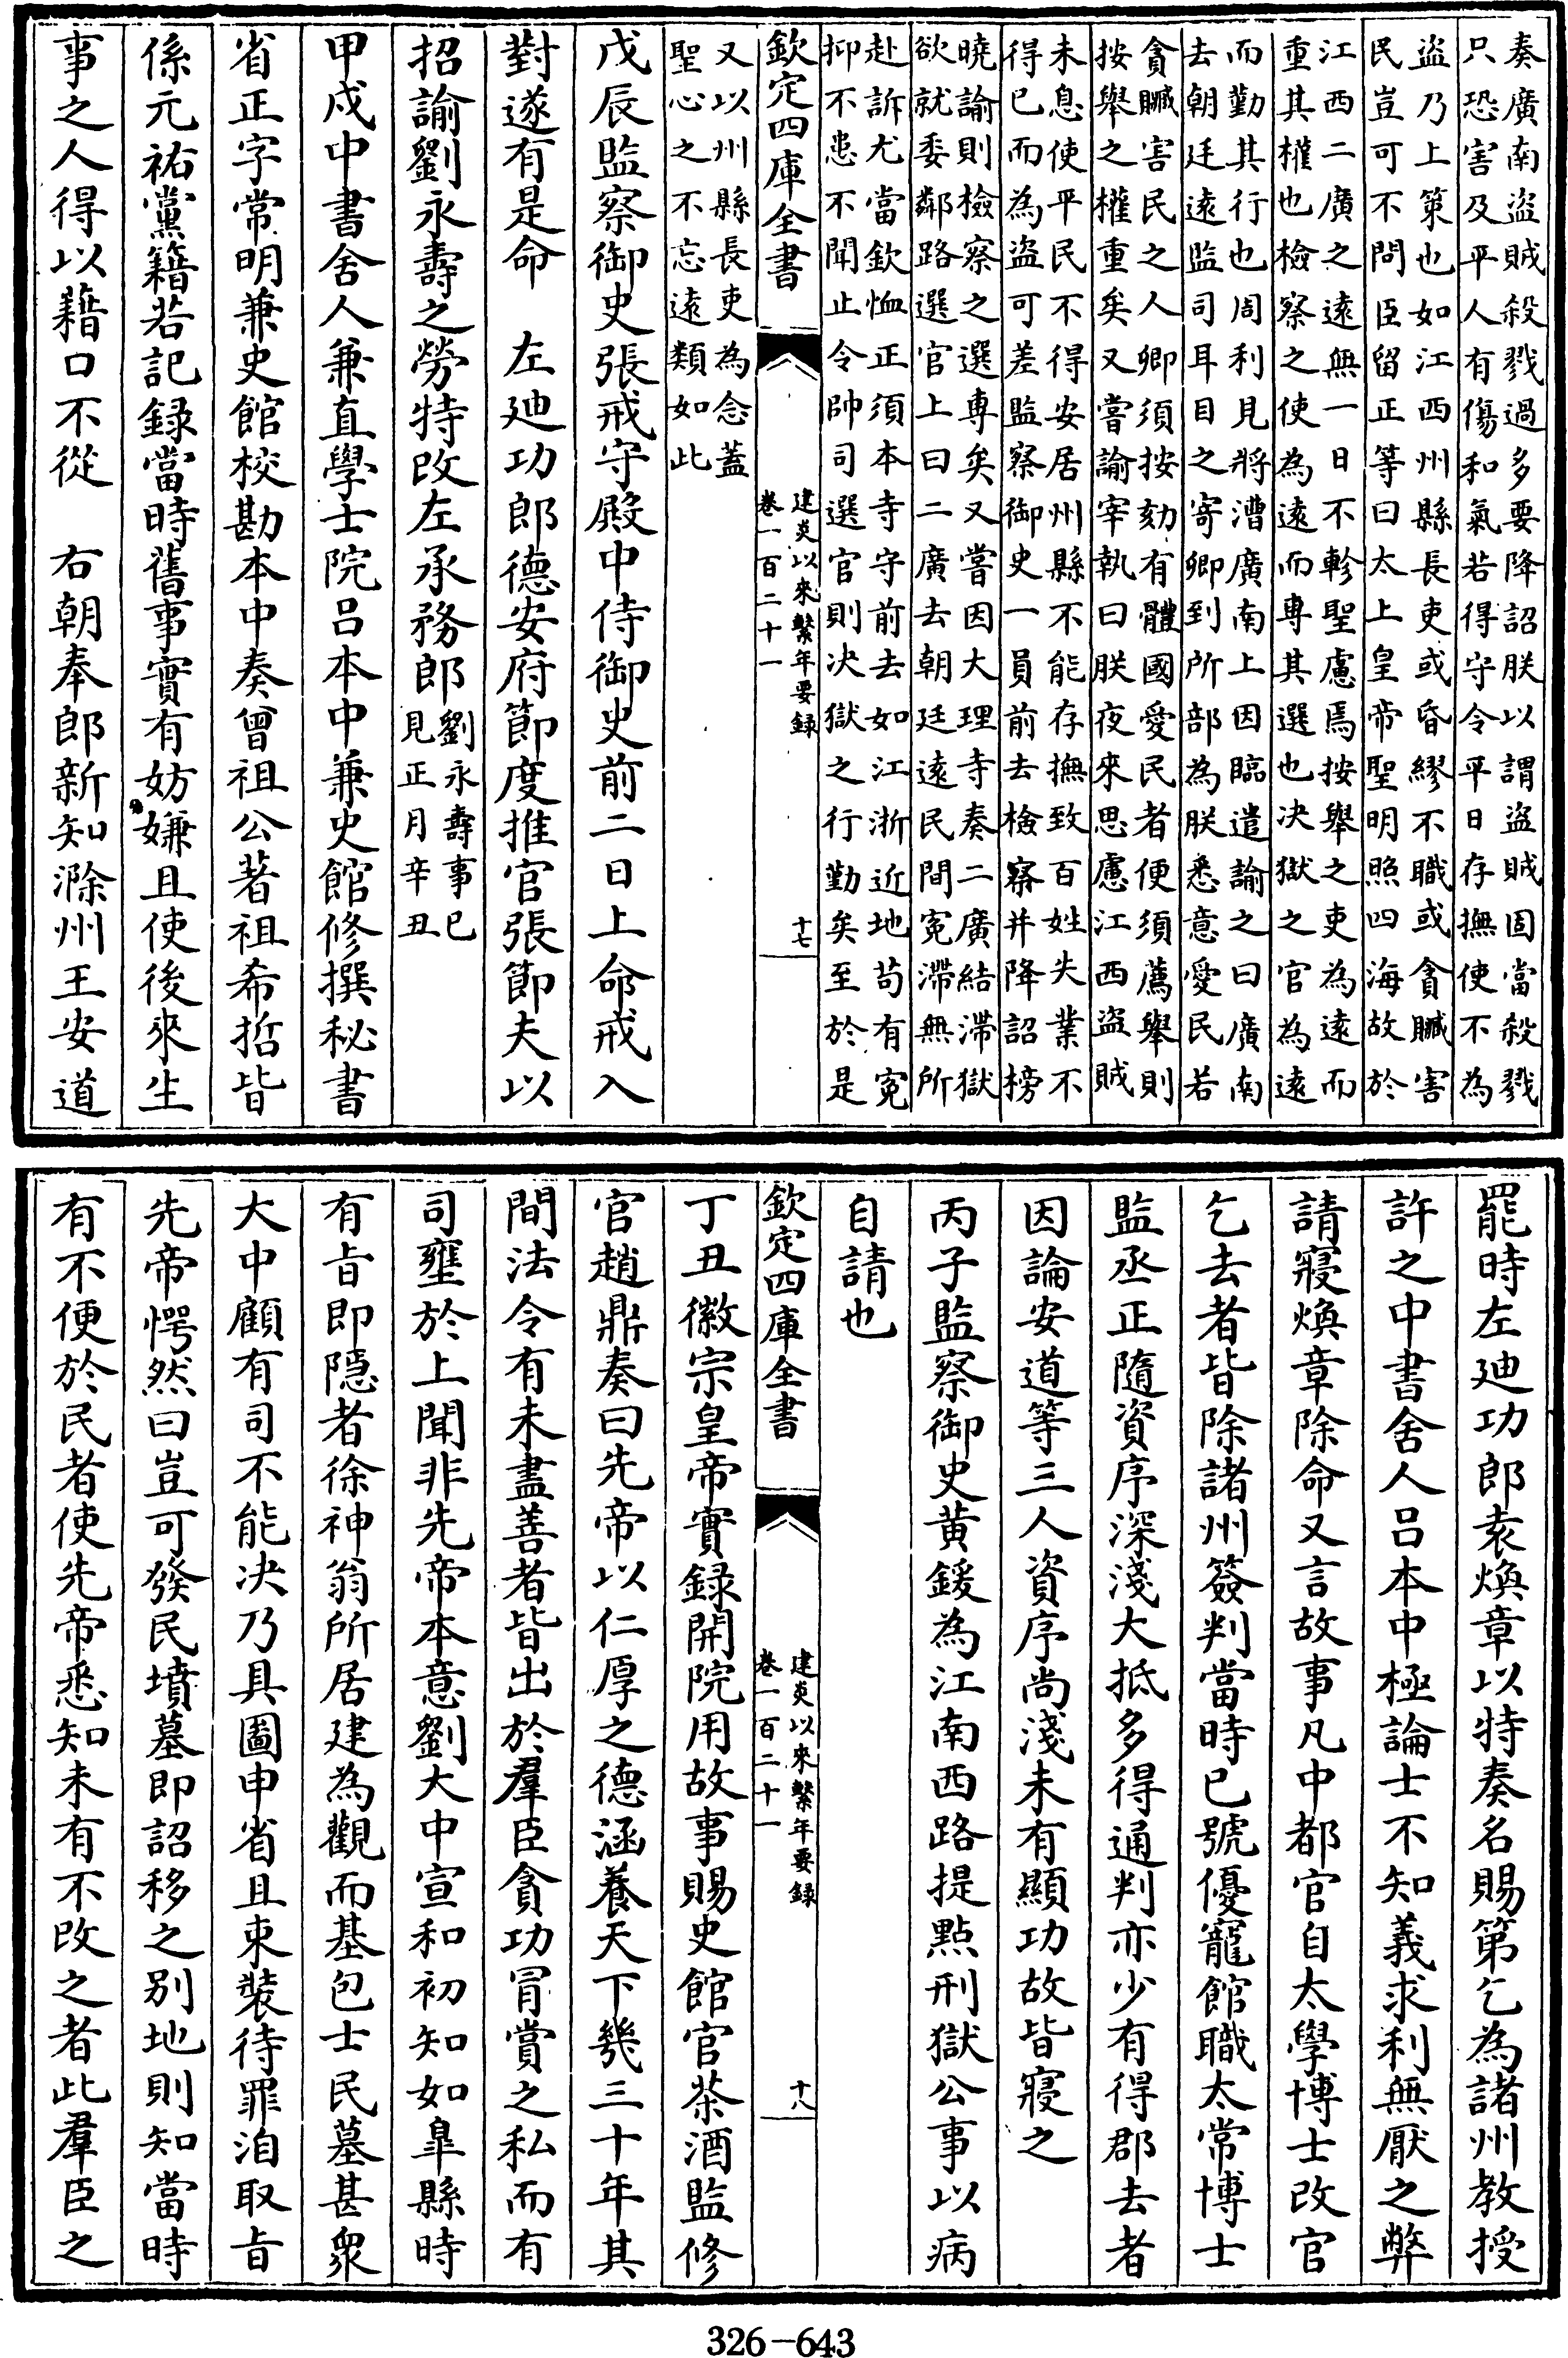 奏廣南盜賊殺戮過多要降詔朕以謂盜賊固當殺戮
只恐害及平人有傷和氣若得守令平日存撫使不為
盜乃上策也如江西州縣長吏或昏繆不職或貪贓害
民豈可不問臣留正等曰太上皇帝聖明照四海故於
江西二廣之遠無一日不軫聖慮焉按舉之吏為遠而
重其權也檢察之使為遠而專其選也决獄之官為遠
而勤其行也周利見將漕廣南上因臨遣諭之曰廣南
去朝廷遠監司耳目之寄卿到所部為朕悉意愛民若
貪贓害民之人卿須按劾有體國愛民者便須薦舉則
按舉之權重矣又嘗諭宰執曰朕夜來思慮江西盜賊
未息使平民不得安居州縣不能存撫致百姓失業不
得已而為盜可差監察御史一員前去檢察并降詔榜
曉諭則檢察之選専矣又嘗因大理寺奏二廣結滯獄
欲就委鄰路選官上曰二廣去朝廷遠民間寃滯無所
赴訴尤當欽恤正須本寺守前去如江浙近地苟有寃
抑不患不聞止令帥司選官則决獄之行勤矣至於是
欽定四庫全書
建炎以來繫年要録
卷一百二十一
十七
又以州縣長吏為念蓋
聖心之不忘遠類如此
戊辰監察御史張戒守殿中侍御史前二日上命戒入
對遂有是命　左廸功郎德安府節度推官張節夫以
招諭劉永壽之勞特改左承務郎劉永壽事已見正月辛丑
甲戍中書舍人兼直學士院呂本中兼史館修撰秘書
省正字常明兼史館校勘本中奏曾祖公著祖希哲皆
係元祐黨籍若記録當時舊事實有妨嫌且使後來生
事之人得以藉口不從　右朝奉郎新知滁州王安道
罷時左廸功郎袁煥章以特奏名賜第乞為諸州教授
許之中書舍人呂本中極論士不知義求利無厭之弊
請寢煥章除命又言故事凡中都官自太學博士改官
乞去者皆除諸州簽判當時已號優寵館職太常博士
監丞正隨資序深淺大抵多得通判亦少有得郡去者
因論安道等三人資序尚淺未有顯功故皆寢之
丙子監察御史黄鍰為江南西路提點刑獄公事以病
自請也
欽定四庫全書
建炎以來繫年要録
卷一百二十一
十八
丁丑徽宗皇帝實録開院用故事賜史館官茶酒監修
官趙鼎奏曰先帝以仁厚之德涵養天下幾三十年其
間法令有未盡善者皆出於羣臣貪功冐賞之私而有
司壅於上聞非先帝本意劉大中宣和初知如臯縣時
有㫖即隱者徐神翁所居建為觀而基包士民墓甚衆
大中顧有司不能决乃具圖申省且束裝待罪洎取㫖
先帝愕然曰豈可發民墳墓即詔移之别地則知當時
有不便於民者使先帝悉知未有不改之者此羣臣之
326-643